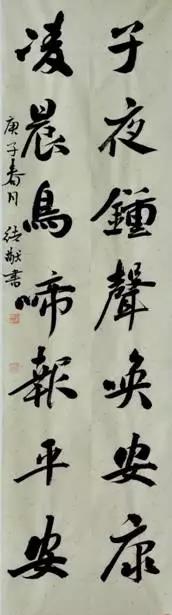 子夜鍾聲喚安康
凌晨鳥啼報平安
庚子春月 続猷書